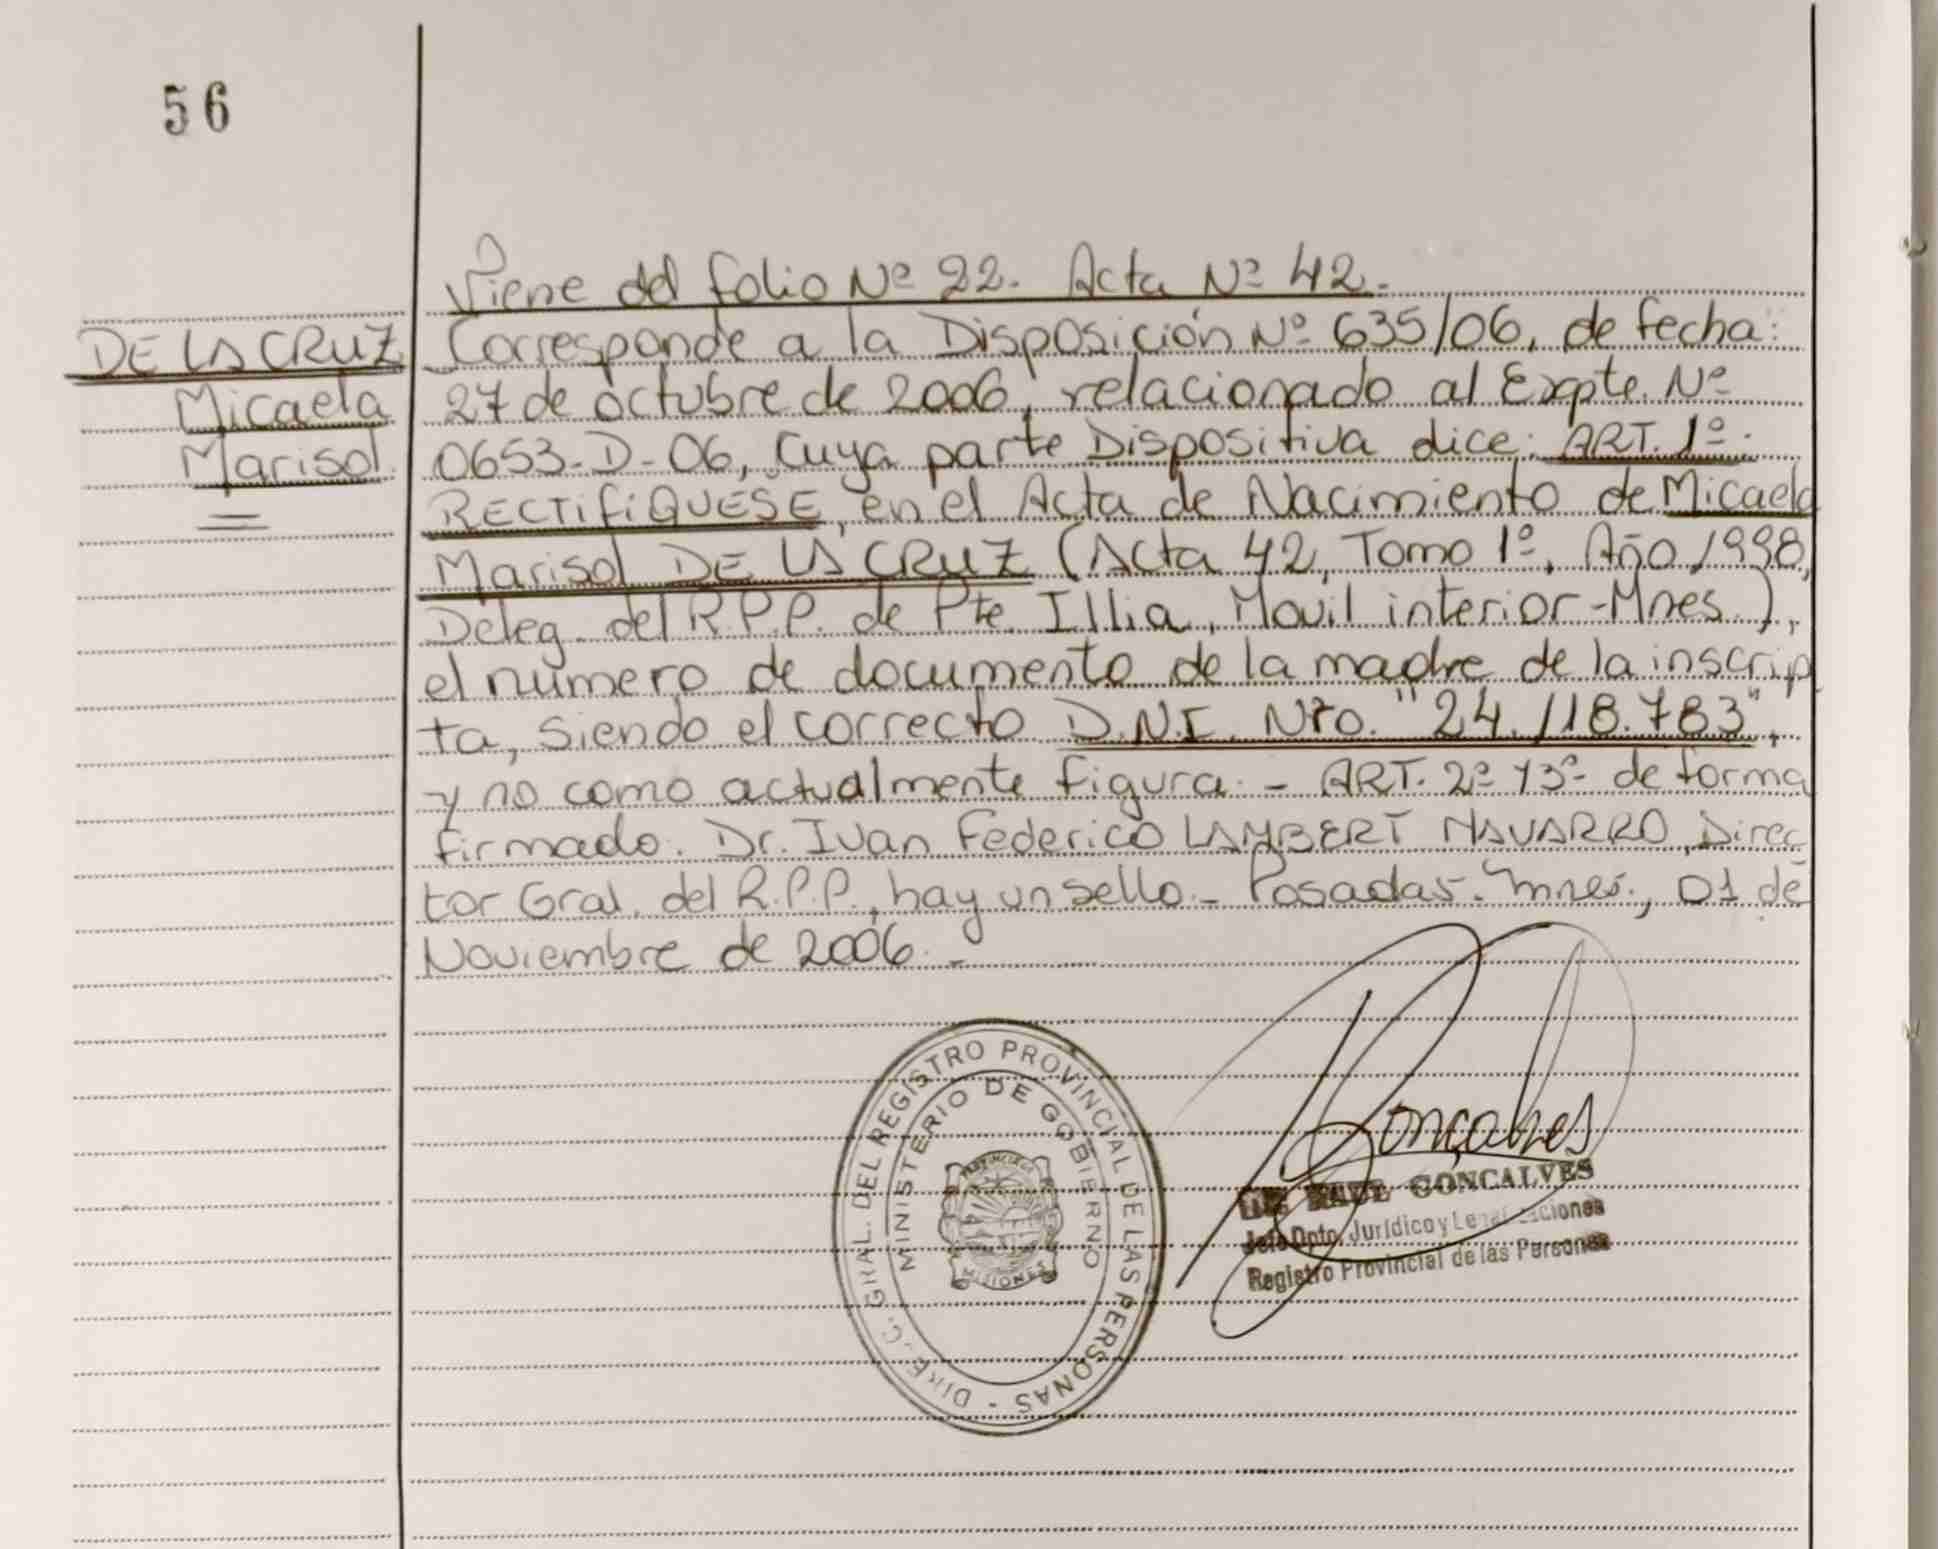 56
DE LA CRUZ
Micaela
Marisol
Viene del folio Nº 22. Acta Nº 42.
Corresponde a la Disposición Nº 635/06, de fecha:
27 de octubre de 2006, relacionado al Expte. Nº
0653-D-06, cuya parte Dispositiva dice: ART. 1º:
RECTIFÍQUESE, en el Acta de Nacimiento de Micaela
Marisol DE LA CRUZ (Acta 42, Tomo 1º, Año 1998,
Deleg. del R.P.P. de Pte. Illia, Movil interior-Mnes.),
el número de documento de la madre de la inscrip
ta, siendo el correcto D.N.I. Nro. "24.118.783",
y no como actualmente figura.- ART. 2º y 3º- de forma
firmado. Dr. Ivan Federico LAMBERT NAVARRO, Direc
tor Gral. del R.P.P., hay un sello.- Posadas. Mnes., 01 de
Noviembre de 2006.-
DIREC. GRAL. DEL REGISTRO PROVINCIAL DE LAS PERSONAS -
MINISTERIO DE GOBIERNO
PROVINCIA DE
MISIONES
Goncalves
RAUL GONCALVES
Jefe Dpto. Jurídico y Legalizaciones
Registro Provincial de las Personas